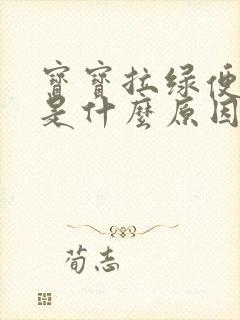 寶寶拉绿便
是什麼原因
荀志